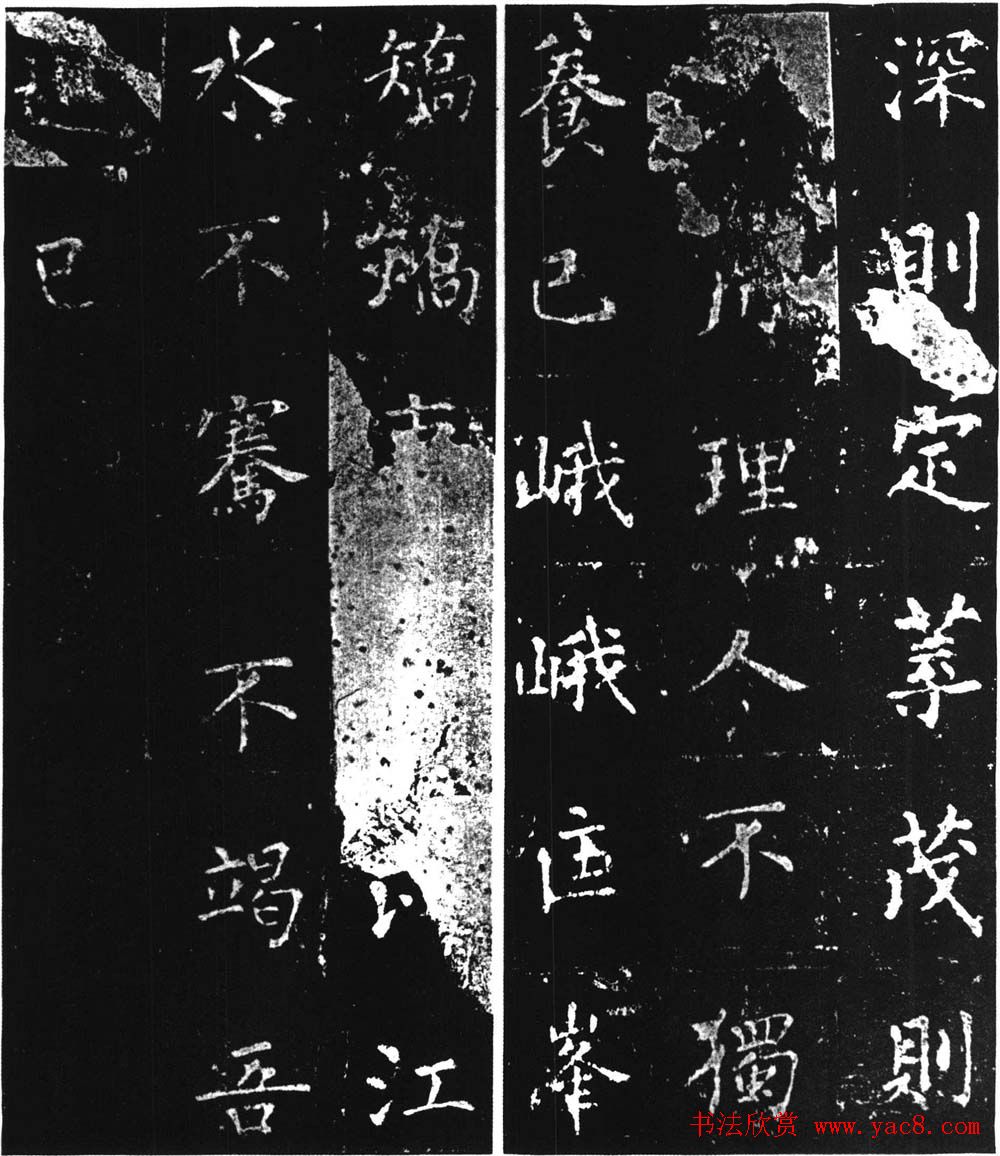 深則定萃茂則
理人不獨
養己峨峨匡峯
矯矯江
水不騫不竭吾
已
书法欣赏 www.yac8.com